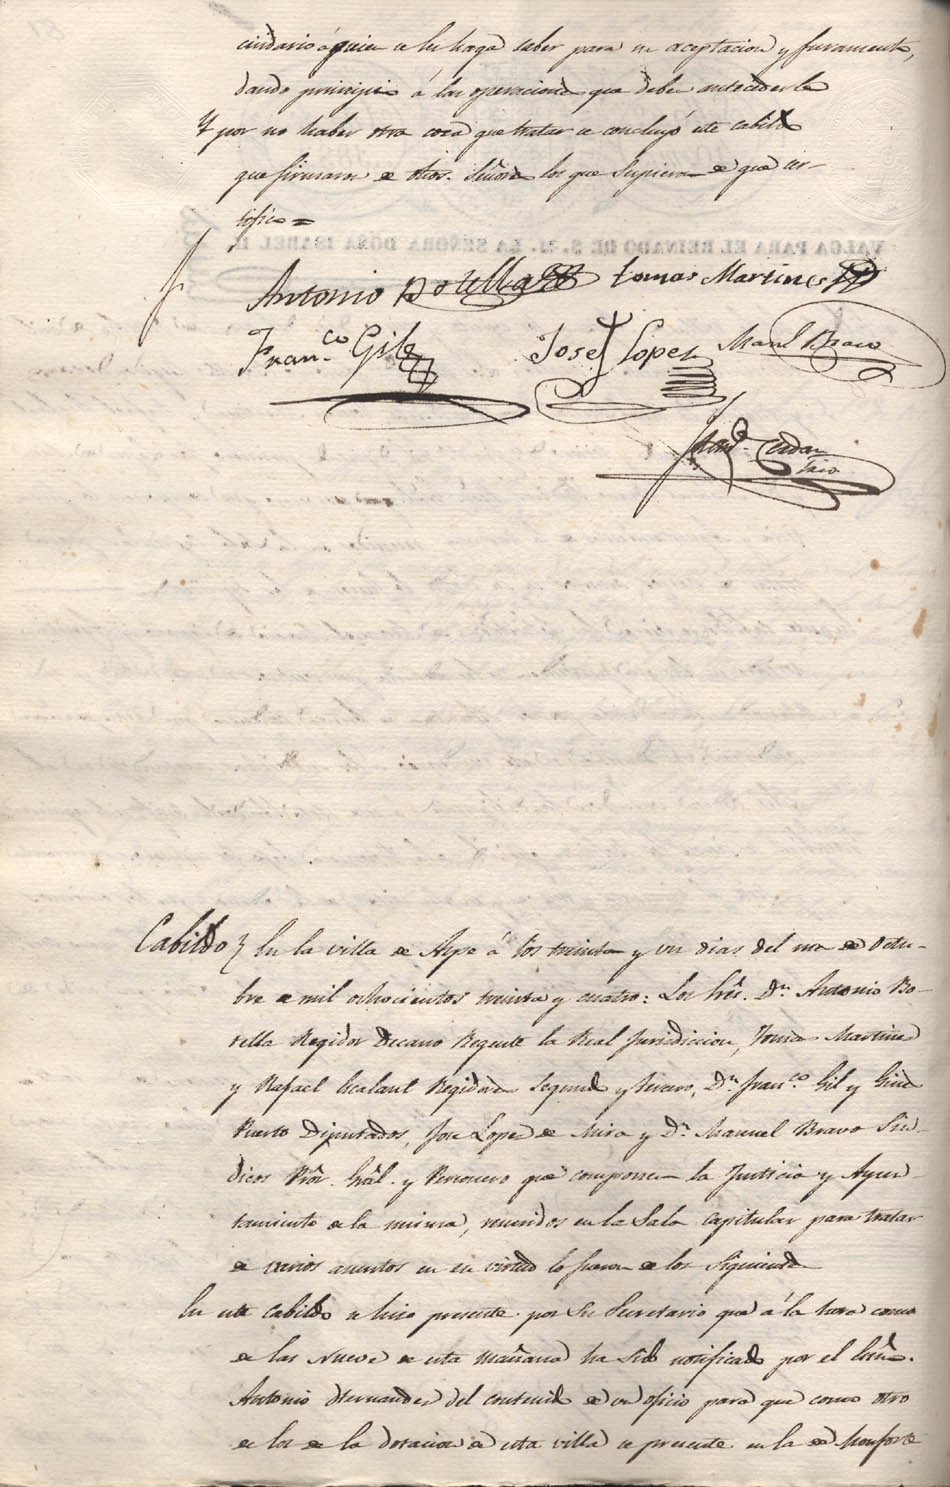 cindario á quien se les haga saber para su aceptacion y juramento,
dando principio á las operaciones que deben antecederla
Y por no haber otra cosa que tratar se concluyó este cabildo
que firmaron de dhos. Señores los que supieron de que cer-
tifico =
VALGA PARA EL REINADO DE S. M. LA SEÑORA DOÑA ISABEL II.
Antonio Botella tomas Martines
Fran.co Gil Josef Lopez Man.l Bravo
Cabildo En la villa de Aspe á los treinta y un dias del mes de Octu-
bre de mil ochocientos treinta y cuatro: Los Sres. Dn. Antonio Bo-
tella Regidor Decano Regente la Real Jurisdiccion, Tomas Martines
y Rafael Escalant Regidores Segundo y tercero, Dn. Fran.co Gil y Gines
Puerto Diputados, Jose Lopez de Mira y Dn. Manuel Bravo Sin-
dicos Pror. Gral. y Personero que componen la Justicia y Ayun-
tamiento de la misma, reunidos en la Sala Capitular para tratar
de varios asuntos en su virtud lo fueron de los siguientes
En este Cabildo se hizo presente por su Secretario que á la hora como
de las Nueve de esta Mañana ha sido notificado por el
Antonio Hernandez del contenido de un oficio para que como otro
de los de la dotacion de esta villa se presente en la de Monforte